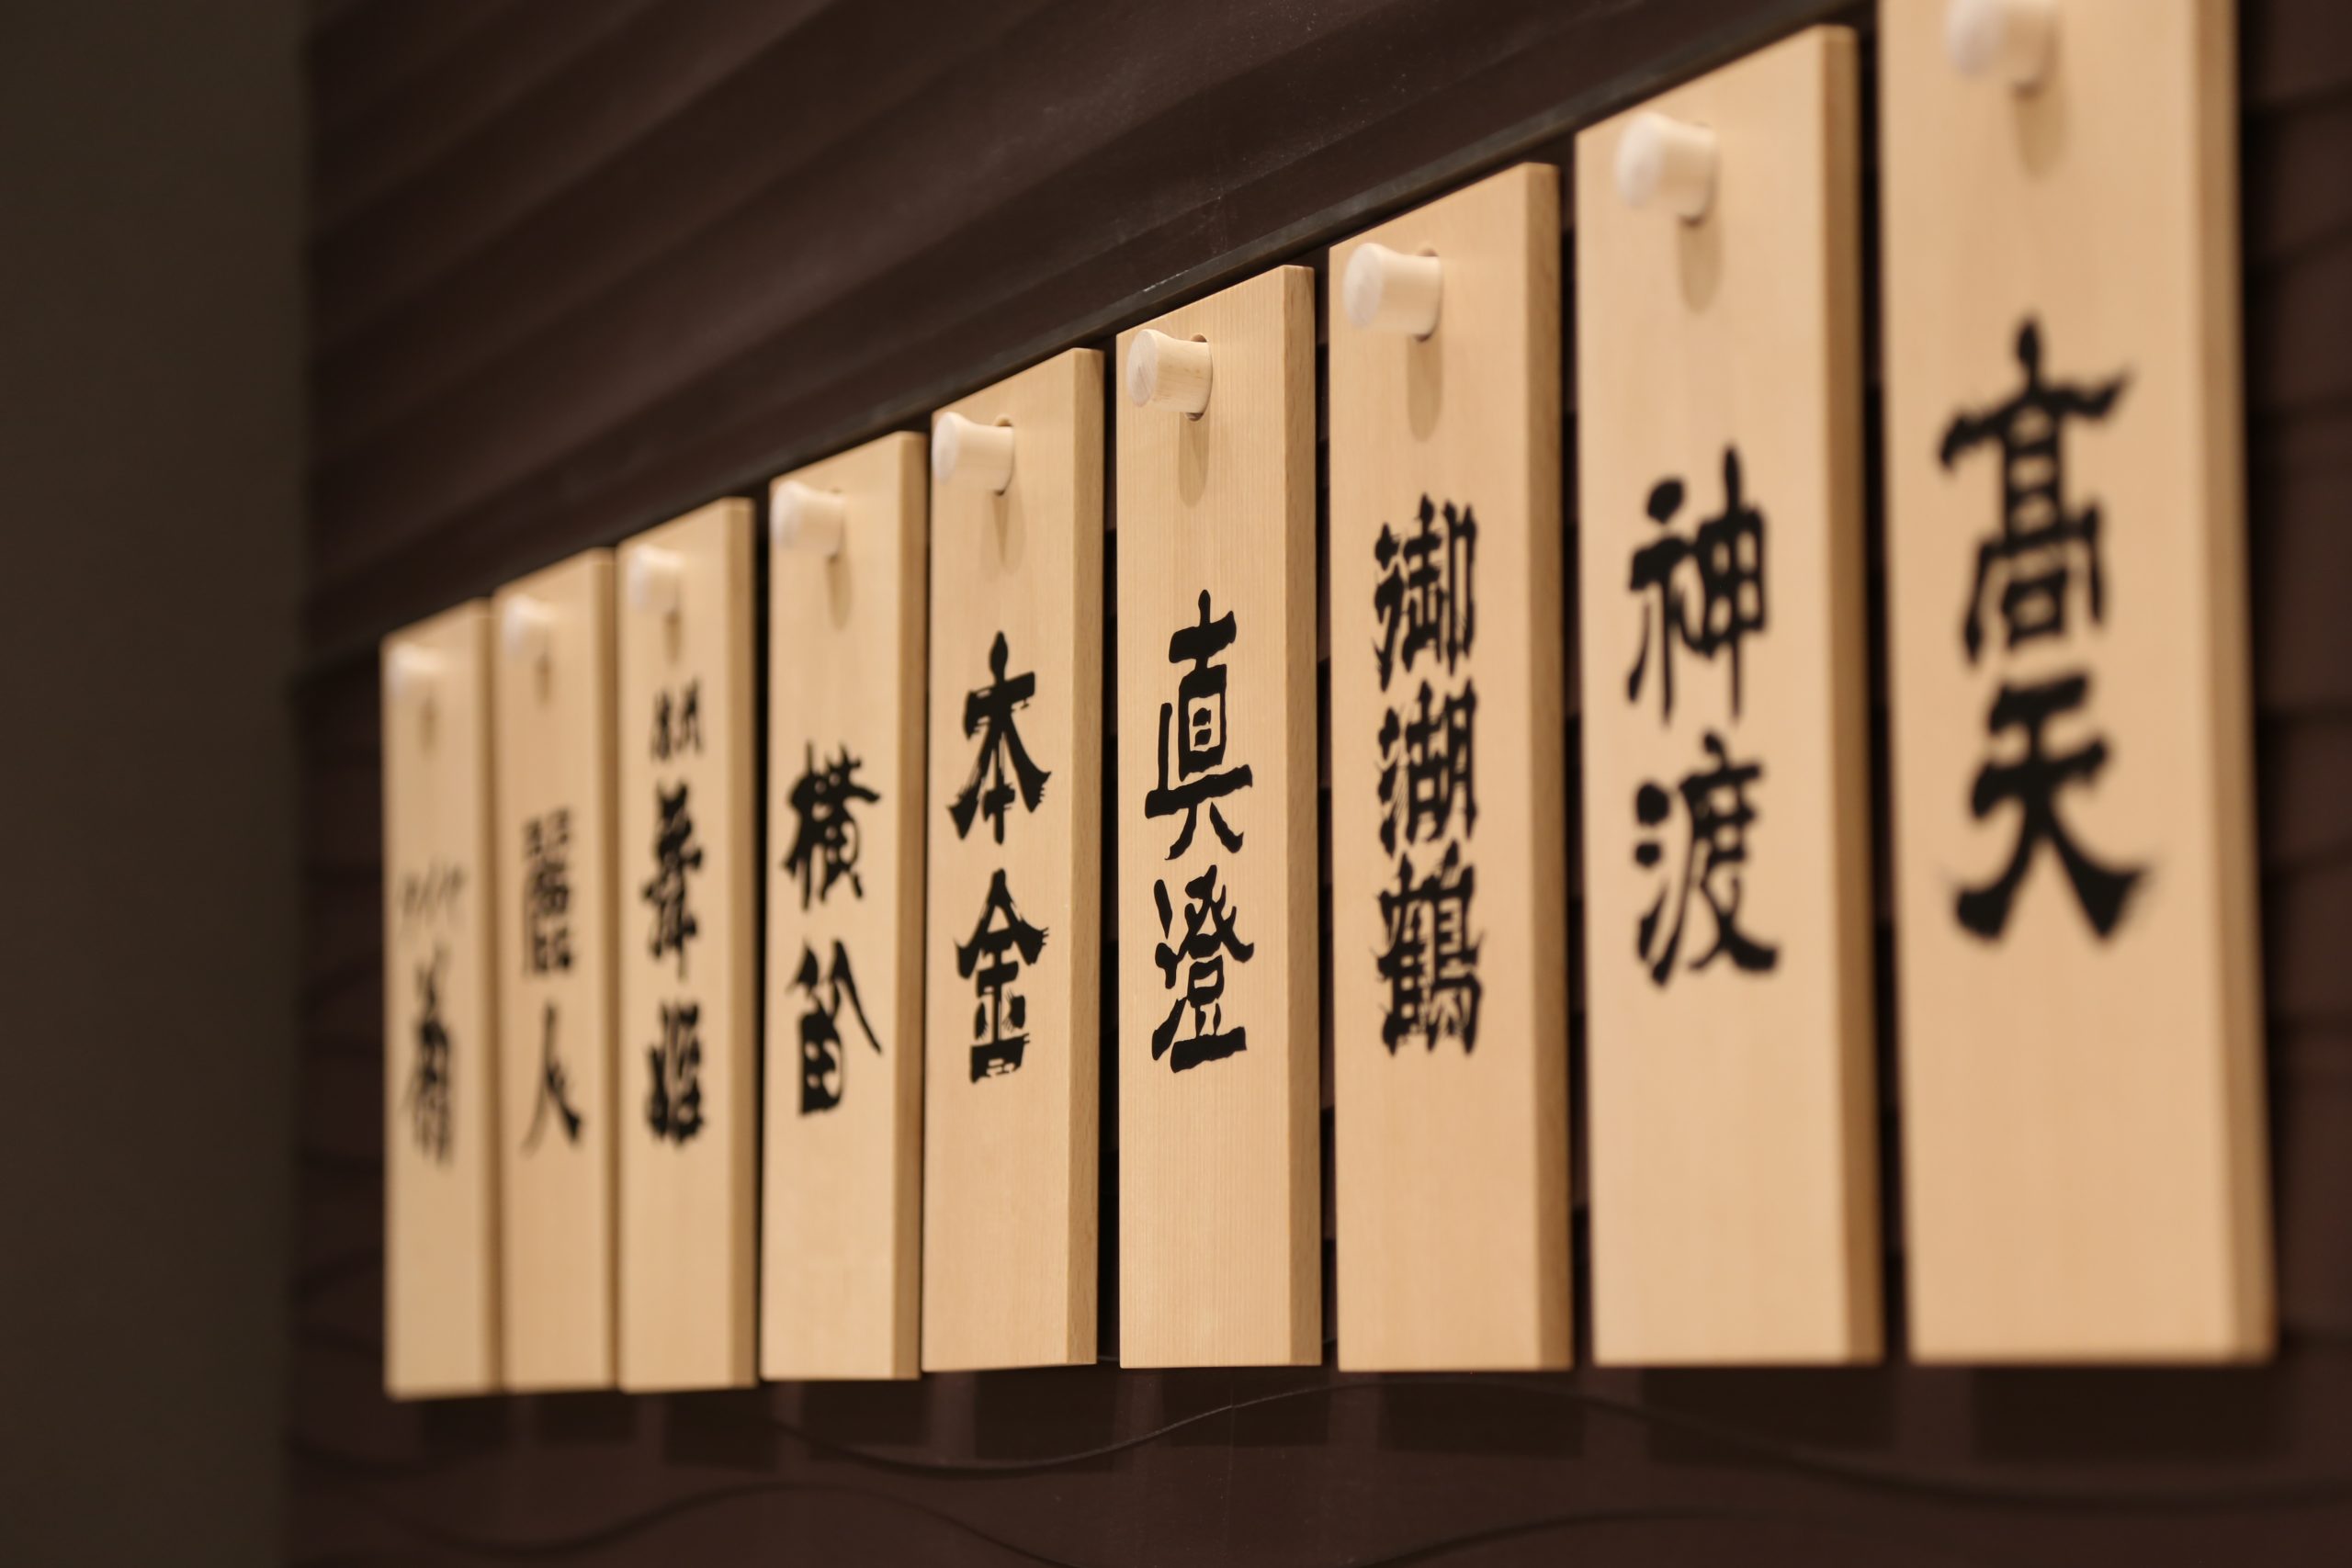 高天
神渡
御湖鶴
真澄
本金
横笛
舞姫
麗人